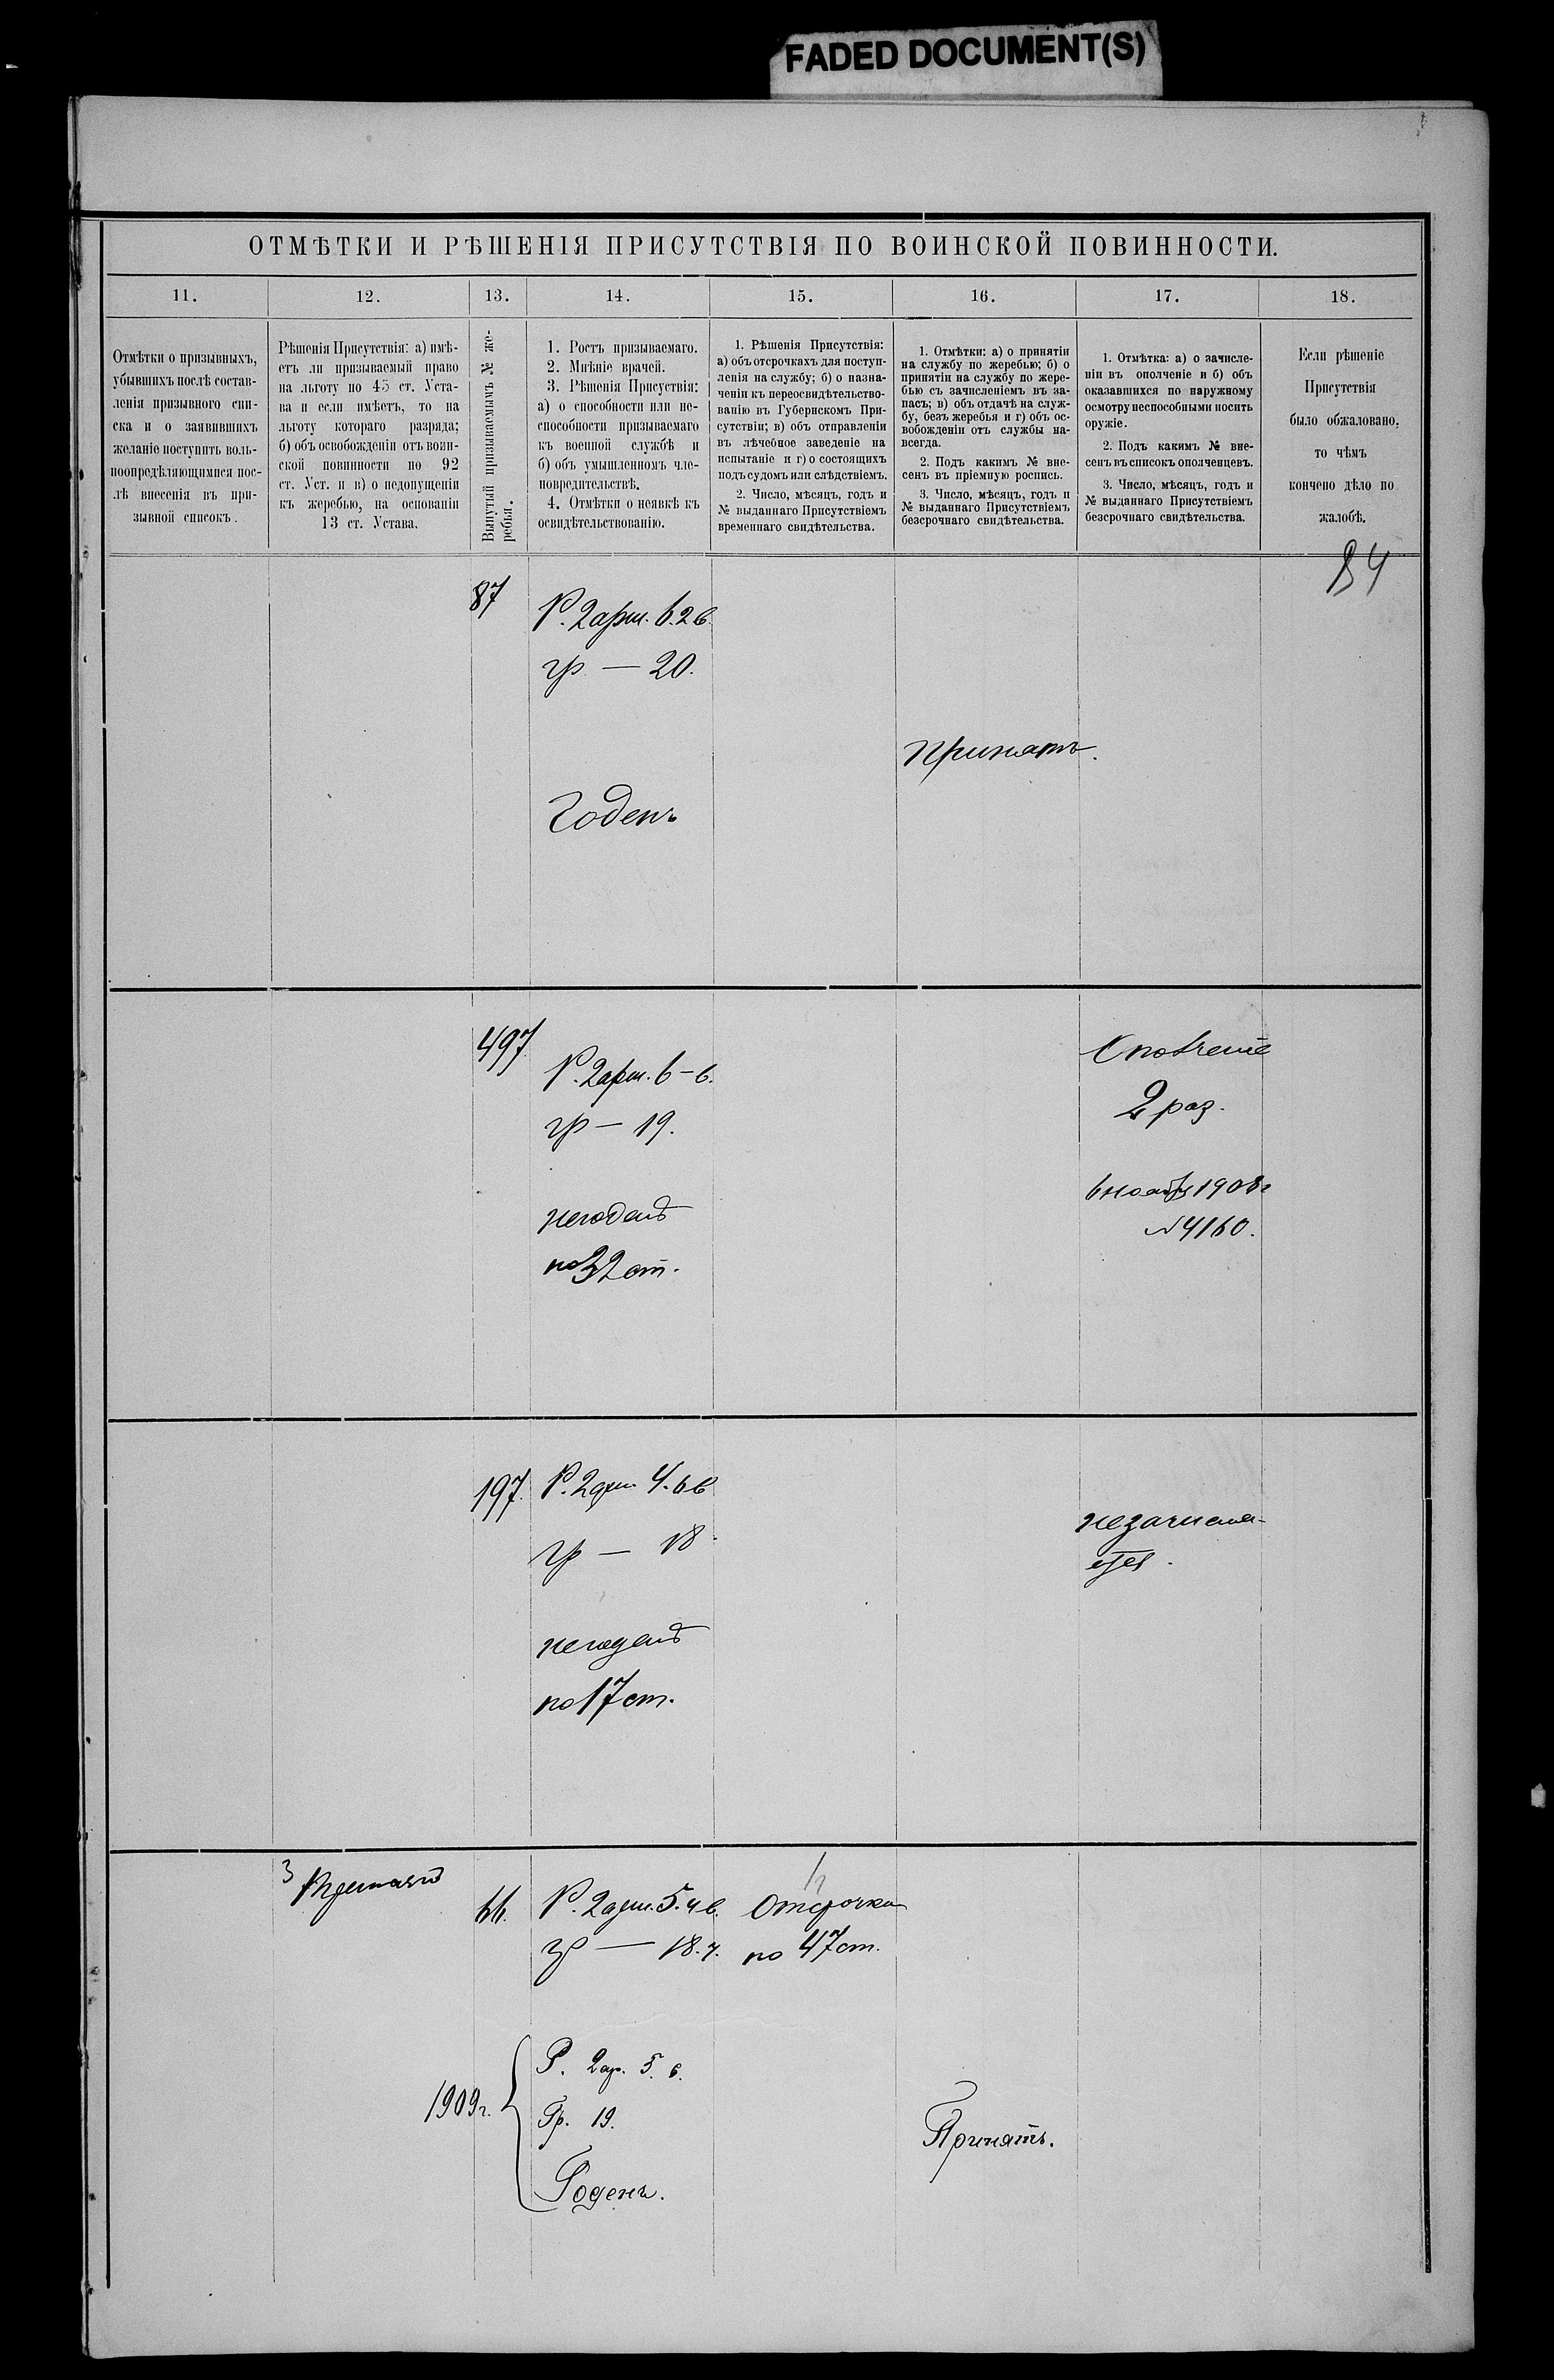 FADED DOCUMENT(S)
ОТМѢТКИ И РѢШЕНІЯ ПРИСУТСТВІЯ ПО ВОИНСКОЙ ПОВИННОСТИ.
11.
12.
13.
14.
15.
16.
17.
18.
Отмѣтки о призывныхъ,
убывшихъ послѣ состав-
ленія призывного спи-
ска и о заявившихъ
желаніе поступить воль-
ноопредѣляющимися пос-
лѣ внесенія въ при-
зывной списокъ.
Рѣшенія Присутствія: а) имѣ-
етъ ли призываемый право
на льготу по 45 ст. Уста-
ва и если имѣетъ, то на
льготу котораго разряда;
б) объ освобожденіи отъ воин-
ской повинности по 92
ст. Уст. и в) о недопущеніи
къ жеребью, на основаніи
13 ст. Устава.
Вынутый призываемымъ № же-
ребья.
1. Ростъ призываемаго.
2. Мнѣніе врачей.
3. Рѣшенія Присуствія:
а) о способности или не-
способности призываемаго
къ военной службѣ и
б) объ умышленномъ чле-
новредительствѣ.
4. Отмѣтки о неявкѣ къ
освидѣтельствованію.
1. Рѣшенія Присутствія:
а) объ отсрочкахъ для поступ-
ленія на службу; б) о назна-
ченіи къ переосвидѣтельство-
ванію въ Губернскомъ При-
сутствіи; в) объ отправленіи
въ лѣчебное заведеніе на
испытаніе и г) о состоящихъ
подъ судомъ или слѣдствіемъ.
2. Число, мѣсяцъ, годъ и
№ выданнаго Присутствіемъ
временнаго свидѣтельства.
1. Отмѣтки: а) о принятіи
на службу по жеребью; б) о
принятіи на службу по жере-
бью съ зачисленіемъ въ за-
пасъ; в) объ отдачѣ на служ-
бу, безъ жеребья и г) объ ос-
вобожденіи отъ службы на-
всегда.
2. Подъ какимъ № вне-
сенъ въ пріемную роспись.
3. Число, мѣсяцъ, годъ и
№ выданнаго Присутствіемъ
безсрочнаго свидѣтельства.
1. Отмѣтка: а) о зачисле-
ніи въ ополченіе и б) объ
оказавшихся по наружному
осмотру неспособными носить
оружіе.
2. Подъ какимъ № вне-
сенъ въ списокъ ополченцевъ.
3. Число, мѣсяцъ, годъ и
№ выданнаго Присутствіемъ
безсрочнаго свидѣтельства.
Если рѣшеніе
Присутствія
было обжаловано,
то чѣмъ
кончено дѣло по
жалобѣ.
84
87
Р. 2 арш. 6.2 в.
гр — 20.
принятъ.
Годенъ
497
Р. 2 арш. 6 - в.
гр — 19.
негоденъ
по 32 ст.
Ополченіе
2 раз.
6 ноября 1908 г
№ 4160.
197.
Р. 2 арш. 4.6 в
гр — 18.
негоденъ
по 17 ст.
незачисля-
ется.
3
66.
Р. 2 арш. 5.4 в.
гр — 18.7.
Отсрочка
по 47 ст.
1909 г.
Р. 2 ар. 5. в.
Гр. 19.
Годенъ.
Принятъ.